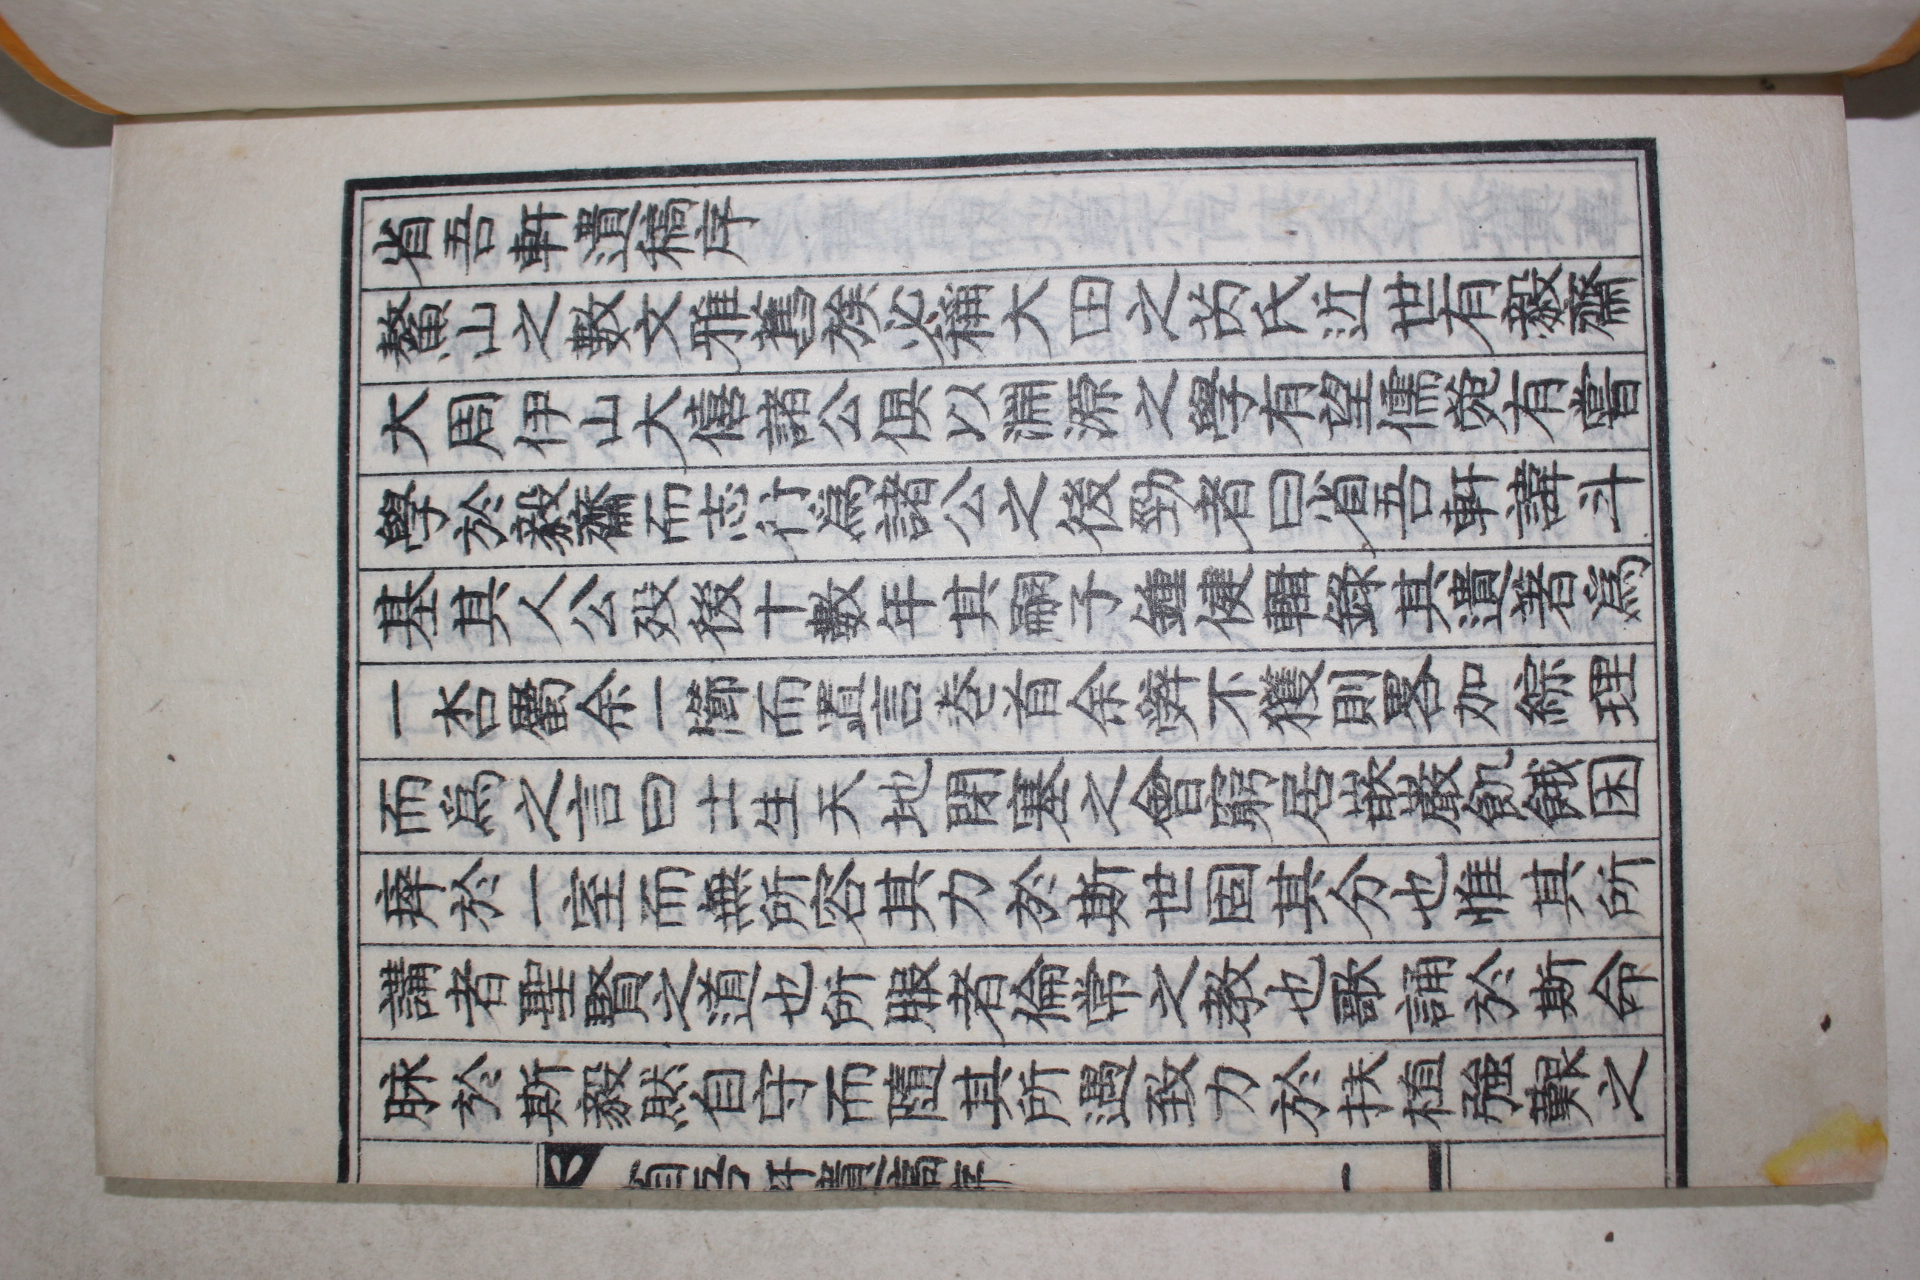 省吾軒遺稿序
鰲山之數文雅舊族必稱大田之安氏近世有毅齋
大周伊山大僖諸公俱以淵源之學有望儒苑有嘗
學於毅齋而志行爲諸公之後勁者曰省吾軒諱斗
基其人公歿後十數年其嗣子鍾健輯錄其遺著爲
一本屬余一攔而置言卷首余辭不獲則畧加綜理
而爲之言曰士生天地閉塞之會窮居嵌巖飢餓困
瘁於一室而無所容其力於斯世固其分也惟其所
講者聖賢之道也所服者倫常之教也歌誦於斯命
脉於斯毅然自守而隨其所遇致力於扶植強艱之
省吾軒遺稿序 一